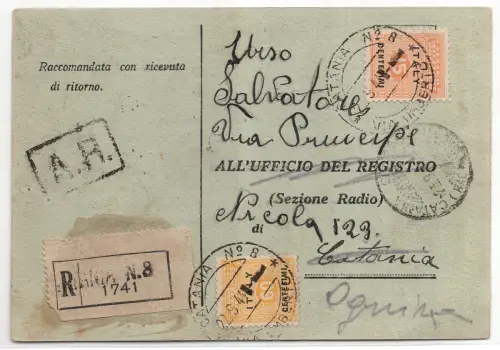 Raccomandata con ricevuta
di ritorno.
A.R.
Urso
Salvatore
Via Principe
ALL'UFFICIO DEL REGISTRO
(Sezione Radio)
Nicola 123.
di
Catania
Ognina
R
N.8
1741
CATANIA N° 8
ITALY
CENTESIMI
CATANIA N° 8
ITALY
CENTESIMI